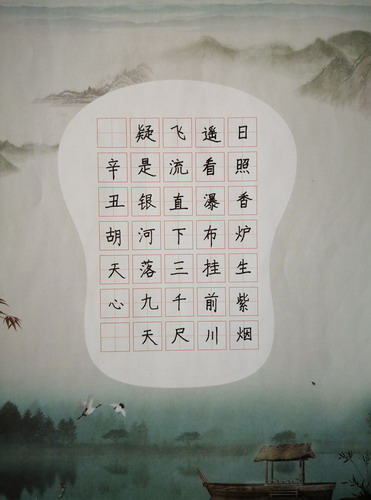 日照香炉生紫烟
遥看瀑布挂前川
飞流直下三千尺
疑是银河落九天
辛丑胡天心